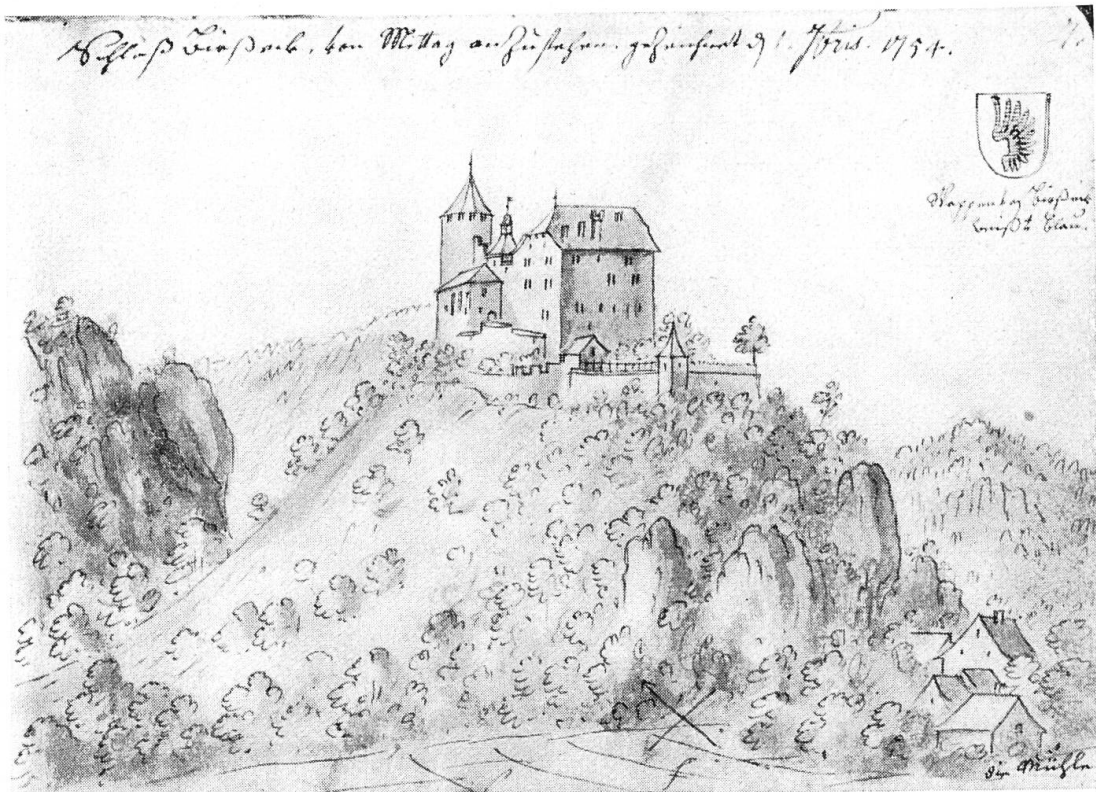 Schloß Birßeck, von Mittag anzusehen. gezeichnet d 1. 1754.
Wappen von Birßeck
weiß & blau.
die Mühle